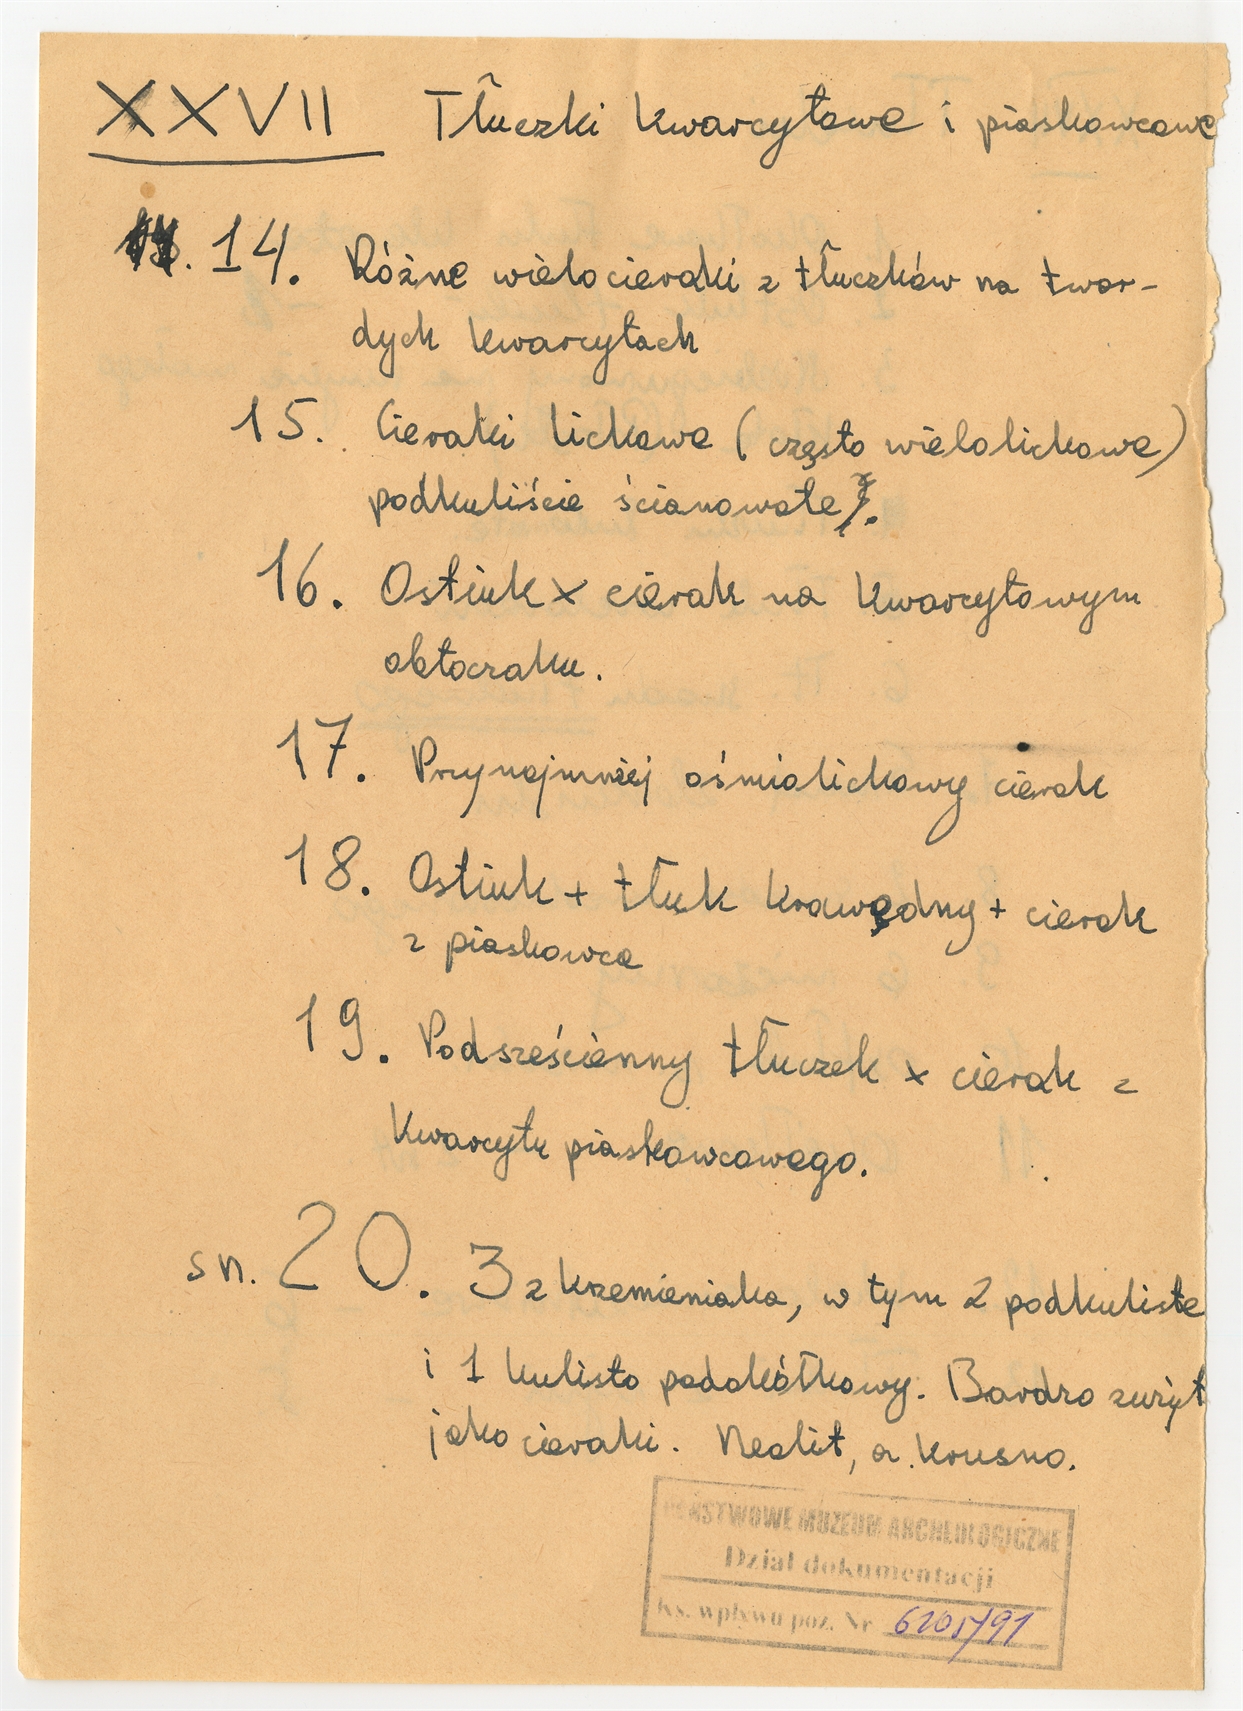 XXVII Tłuczki kwarcytowe i piaskowcowe
14. Różne wielocieraki z tłuczków na twar-
dych kwarcytach
15. Cieraki lickowe (często wielolickowe)
podkuliście ścianowate.
16. Ostiuk x cierak na kwarcytowym
obtoczaku.
17. Przynajmniej ośmiolickowy cierak
18. Ostiuk + tłuk krawędny + cierak
z piaskowca
19. Podsześcienny tłuczek x cierak z
kwarcytu piaskowcowego.
sn. 20. 3 z krzemieniaka, w tym 2 podkuliste
i 1 kulisto podokółkowy. Bardzo zużyt
jako cieraki. Neolit, a. Krusno.
PAŃSTWOWE MUZEUM ARCHEOLOGICZNE
Dział dokumentacji
Ks. wpływu poz. Nr 6205/91